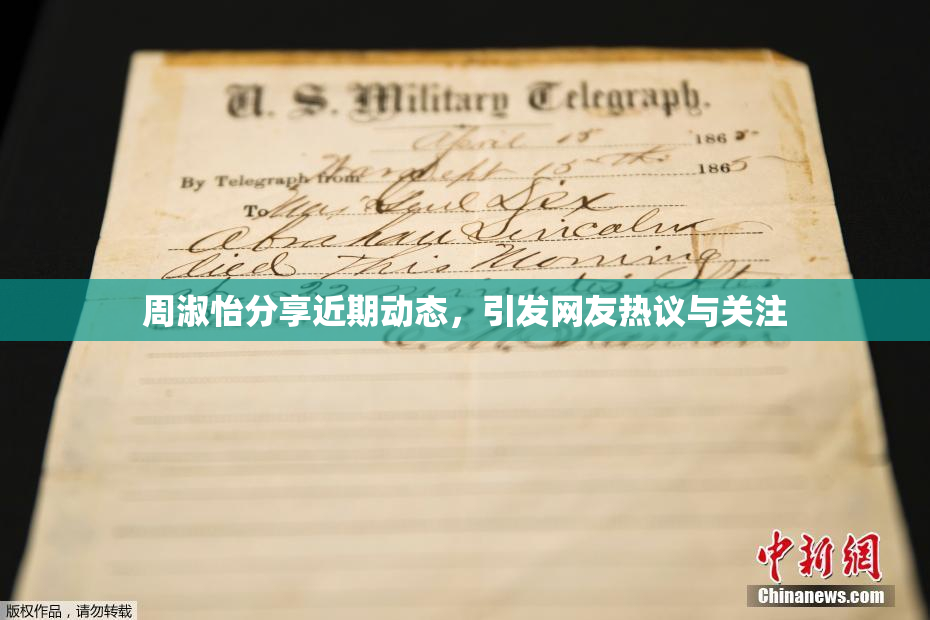 U. S. Military Telegraph.
April 15 1865
By Telegraph from War Dept 15th 1865
To Maj Genl Dix
Abraham Lincoln
died This Morning
22 minutes after
周淑怡分享近期动态，引发网友热议与关注
E. M. Stanton
中新網
Chinanews.com
版权作品，请勿转载